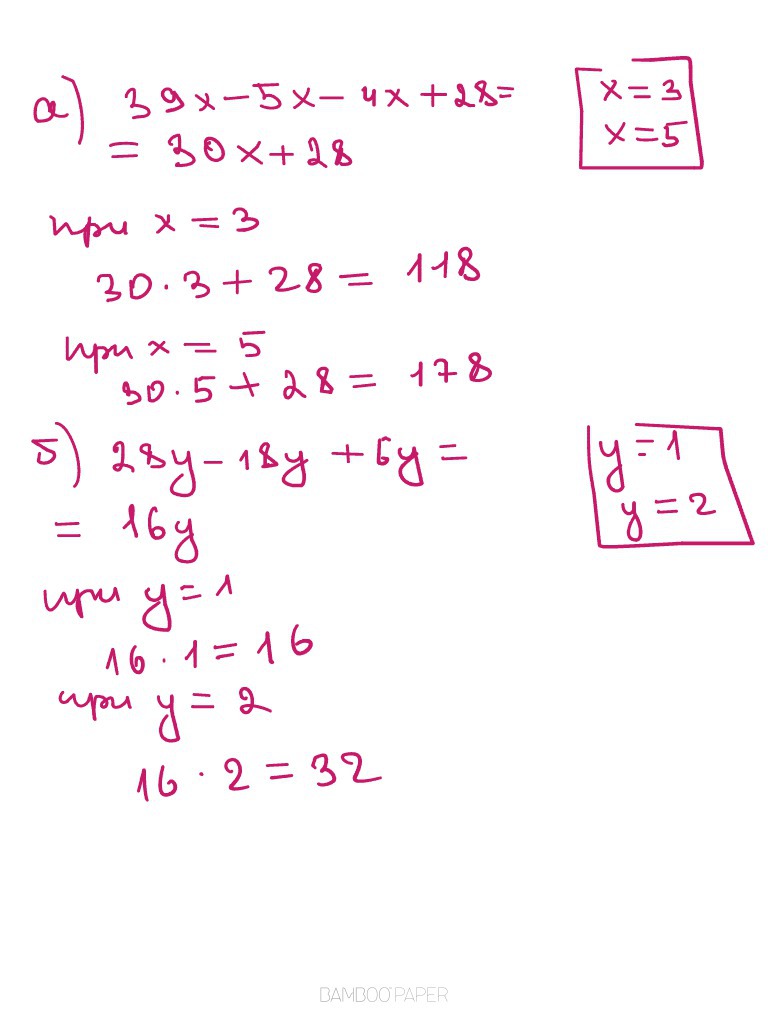 а) 39x - 5x - 4x + 28 =
= 30x + 28
x = 3
x = 5
при x = 3
30 · 3 + 28 = 118
при x = 5
30 · 5 + 28 = 178
б) 28y - 18y + 6y =
= 16y
y = 1
y = 2
при y = 1
16 · 1 = 16
при y = 2
16 · 2 = 32
BAMBOO PAPER